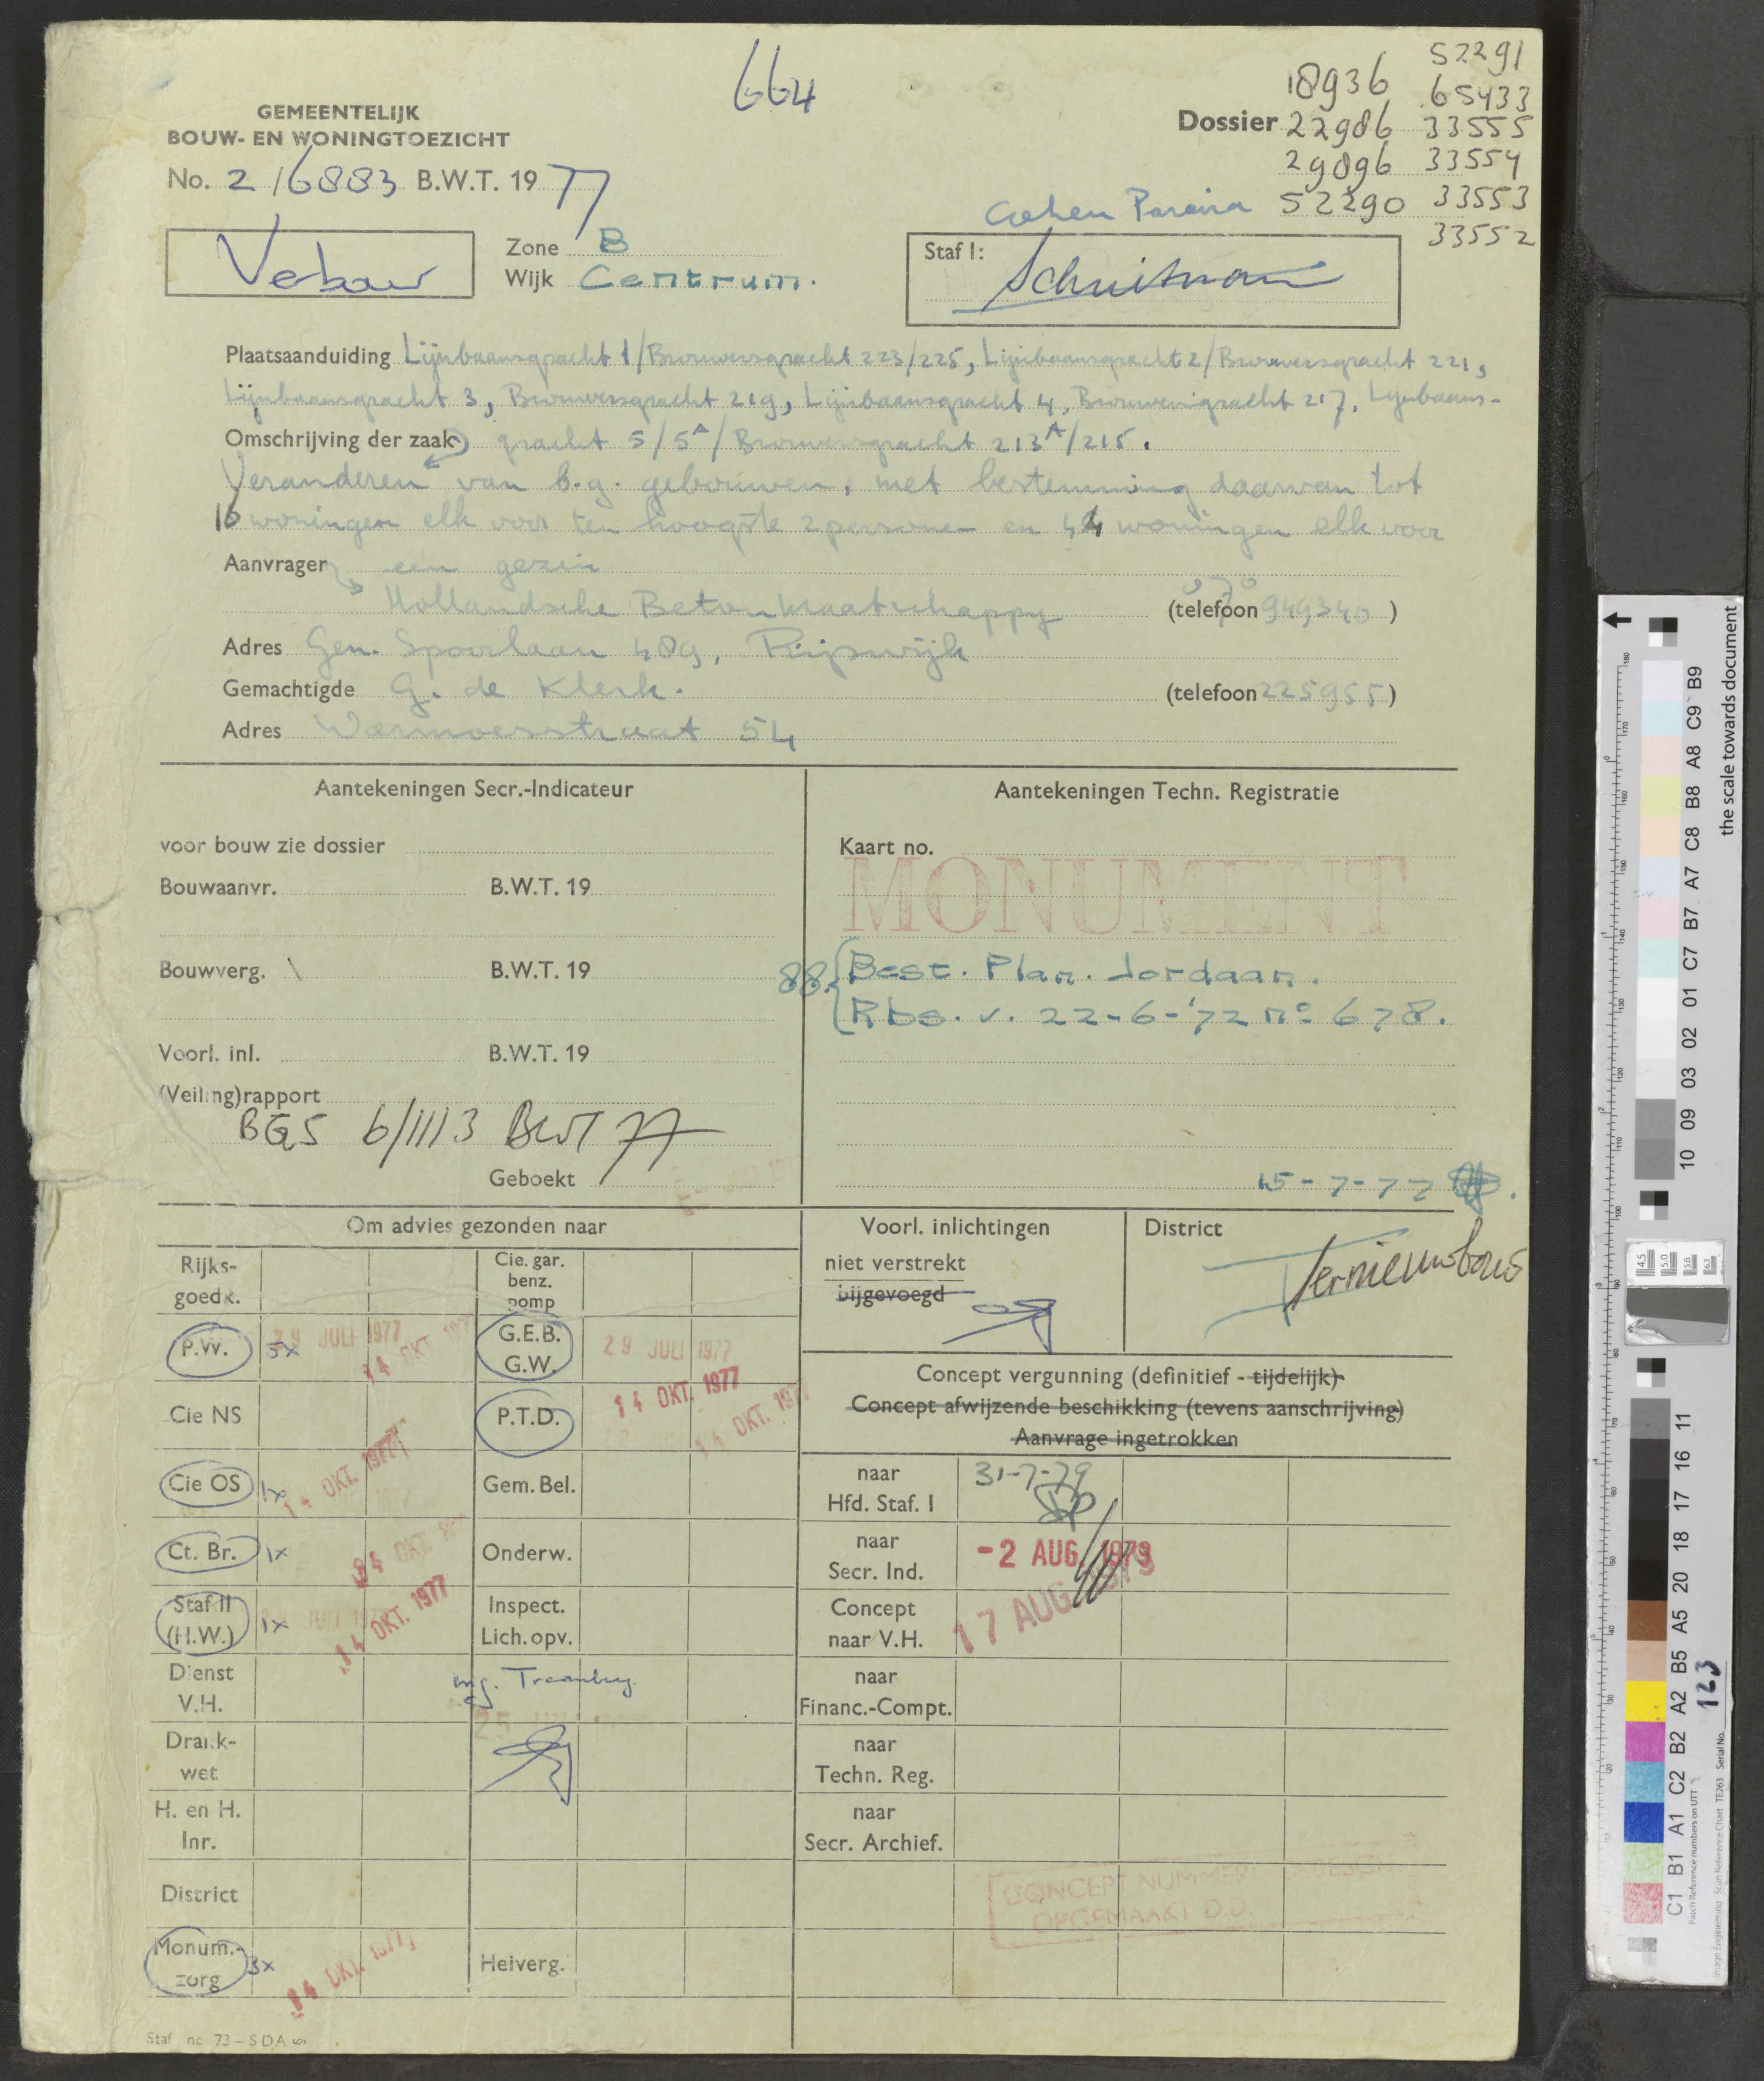 664
18936 52291
65433
GEMEENTELIJK
BOUW- EN WONINGTOEZICHT
Dossier 22986 33555
29896 33554
No. 2/6883 B.W.T. 1977
Cohen Paraira 52290 33553
33552
Verbouw
Zone B
Wijk Centrum.
Staf I:
Schuitman
Plaatsaanduiding Lijnbaansgracht 1/Brouwersgracht 223/225, Lijnbaansgracht 2/Brouwersgracht 221,
Lijnbaansgracht 3, Brouwersgracht 219, Lijnbaansgracht 4, Brouwersgracht 217, Lijnbaans-
Omschrijving der zaak gracht 5/5A/Brouwersgracht 213A/215.
Veranderen van b.g. gebouwen, met bestemming daarvan tot
16 woningen elk voor ten hoogste 2 personen en 44 woningen elk voor
Aanvrager een gezin
Hollandsche Beton Maatschappy (telefoon 070 949340)
Adres Gen. Spoorlaan 489, Rijswijk
Gemachtigde G. de Klerk. (telefoon 225955)
Adres Warmoesstraat 54
Aantekeningen Secr.-Indicateur
Aantekeningen Techn. Registratie
voor bouw zie dossier
Kaart no.
Bouwaanvr. B.W.T. 19
MONUMENT
Bouwverg. B.W.T. 19
88. Best. Plan. Jordaan.
Rbs. v. 22-6-'72 no 678.
Voorl. inl. B.W.T. 19
(Veiling)rapport
BGS 6/1113 BWT 77
Geboekt
15-7-77
Om advies gezonden naar
Voorl. inlichtingen
District
niet verstrekt
bijgevoegd
Rijks-
goedk.
Cie. gar.
benz.
pomp
P.W. 5x 29 JULI 1977 14 OKT. 1977
G.E.B.
G.W. 29 JULI 1977
Cie NS
P.T.D. 14 OKT. 1977 14 OKT. 1977
Concept vergunning (definitief - tijdelijk)
Concept afwijzende beschikking (tevens aanschrijving)
Aanvrage ingetrokken
Cie OS 1x 14 OKT. 1977
Gem. Bel.
naar
Hfd. Staf. I 31-7-79
Ct. Br. 1x 14 OKT.
Onderw.
naar
Secr. Ind. -2 AUG. 1979
Staf II
(H.W.) 1x 14 OKT. 1977
Inspect.
Lich. opv.
Concept
naar V.H. 17 AUG. 1979
Dienst
V.H.
naar
Financ.-Compt.
Drank-
wet
naar
Techn. Reg.
H. en H.
Inr.
naar
Secr. Archief.
District
CONCEPT NUMMER
OPGEMAAKT D.D.
Monum.-
zorg 3x 14 OKT. 1977
Heiverg.
Staf no 73 – SDA
the scale towards document
C1 B1 A1 C2 B2 A2 B5 A5 20 18 17 16 11
10 09 03 02 01 C7 B7 A7 C8 B8 A8 C9 B9
Patch Reference numbers on UTT
Image Engineering Scan Reference Chart TE263 Serial No. 123